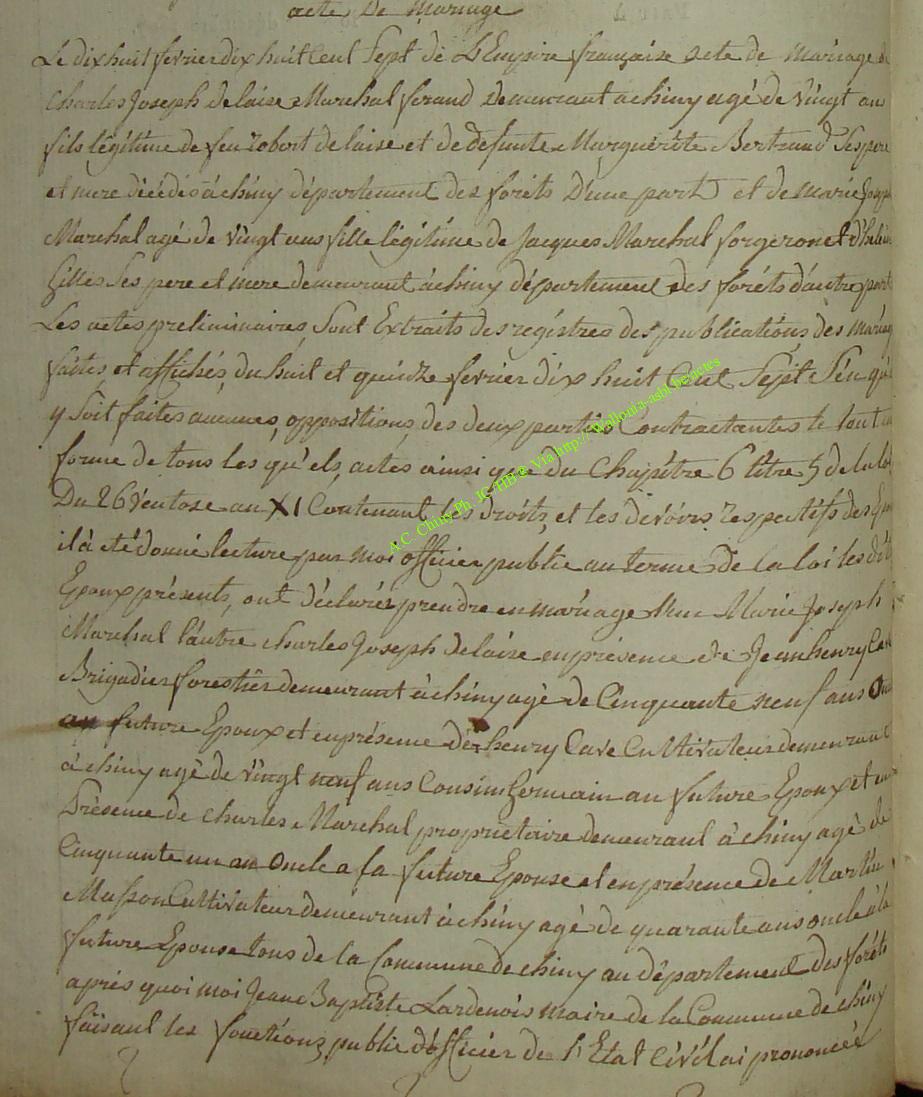 acte De mariage
Le dix huit fevrier dix huit Cent Sept de L'Empire française acte de mariage de
Charles Joseph delaise Marchal ferand Demeurant a chiny agé de vingt an
fils légitime de feu robert delaise et de defunte Marguérite Bertrand Ses pere
et mere décédés à chiny département des forêts D'une part et de marie Joseph
Marchal agé de vingt ans fille légitime de Jacques Marchal forgeron et d'heleine
Gilles Ses pere et mere demeurant à chiny département des foréts dautre part
Les actes preliminaires Sont Extraits des registres des publications des mariag
faites et affichés du huit et quinze fevrier dix huit Cent Sept S'en qu'il
y Soit faites aucunes oppositions des deux parties Contractantes le tout en
forme de tous les qu'els actes ainsi que du Chapitre 6 titre 5 de la loi
Du 26 ventose an XI Contenant les droits et les devoirs respectifs des Epoux
il à été donné lecture par moi officier public au terme de la loi les dits
Epoux présents, ont déclarés prendre en mariage l'une Marie Joseph
Marchal l'autre charles Joseph delaise en présence de Jean henry Cave
Brigadier forestier demeurant à chiny agé de Cinquante neuf ans Oncle
au future Epoux et en présence de henry Cave Cultivateur demeurant
à chiny agé de vingt neuf ans Cousin Germain au future Epoux et en
Présence de charles Marchal proprietaire demeurant à chiny agé de
Cinquante un an Oncle a la future Epouse et en présence de Martin
Masson Cultivateur demeurant à chiny agé de quarante ans oncle à la
future Epouse tous de la Commune de chiny au département des forêts
aprés quoi moi Jean Baptiste Lardenois maire de la Commune de chiny
faisant les fonctions public d'officier de l'Etat Civil ai prononcée
A.C. Chiny Ph. JC/HB © Via http://walloni a-asbl.be/actes